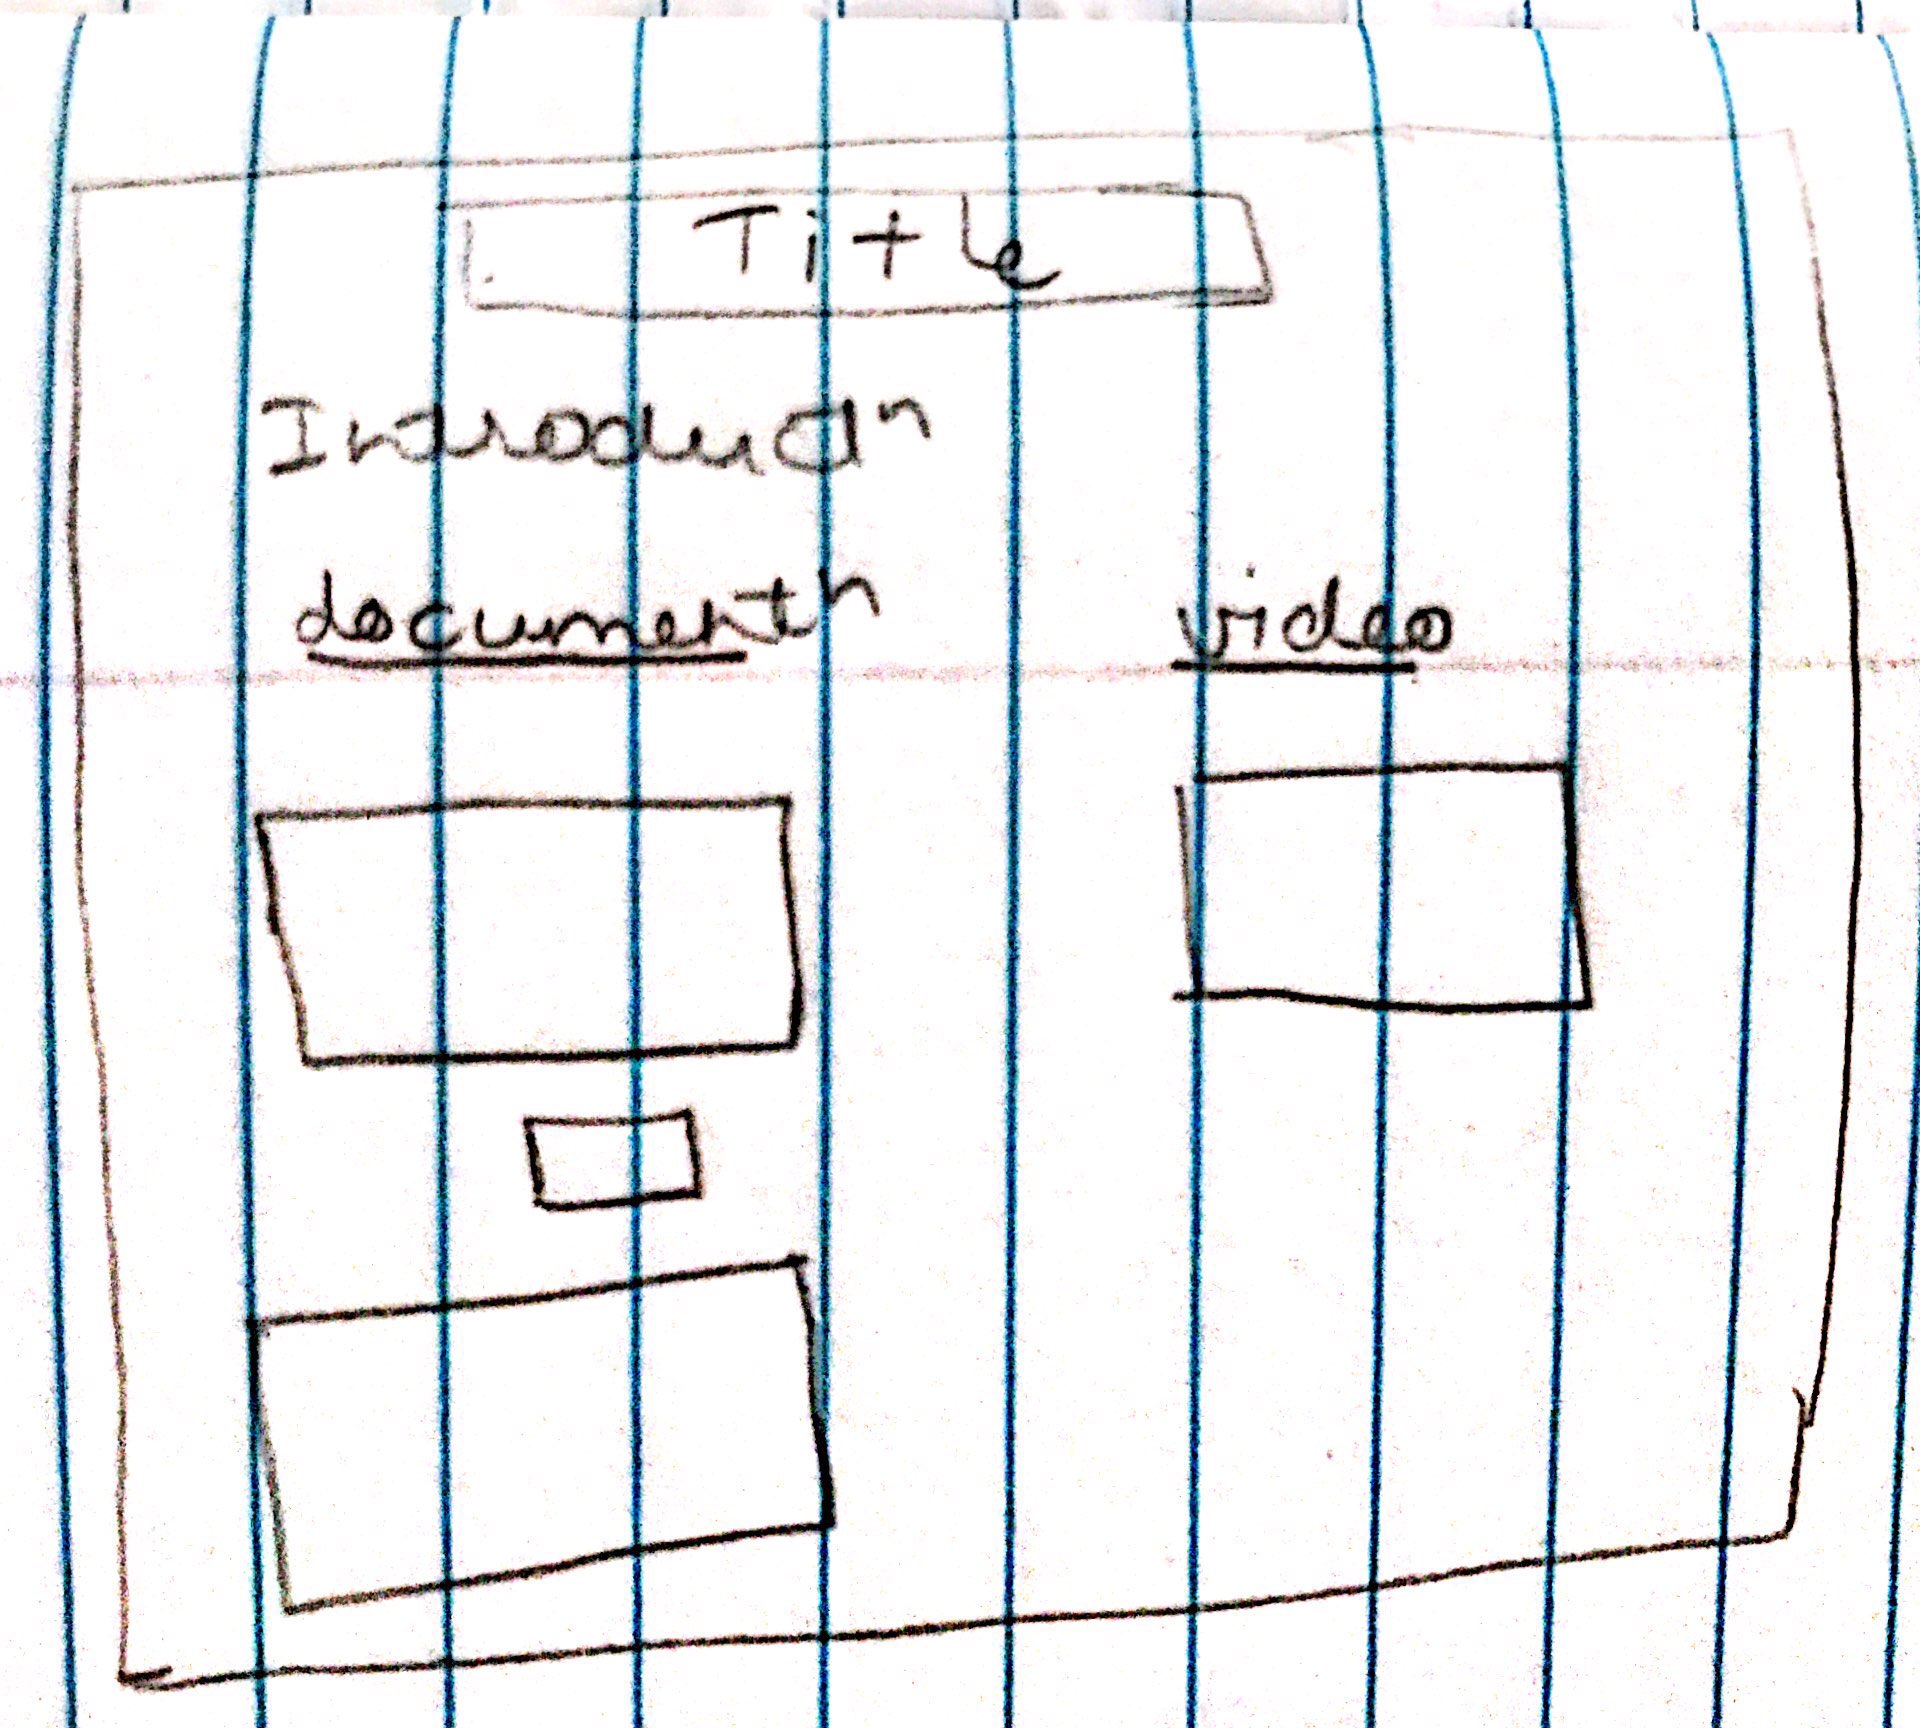 Title
Introductⁿ
documentⁿ
video